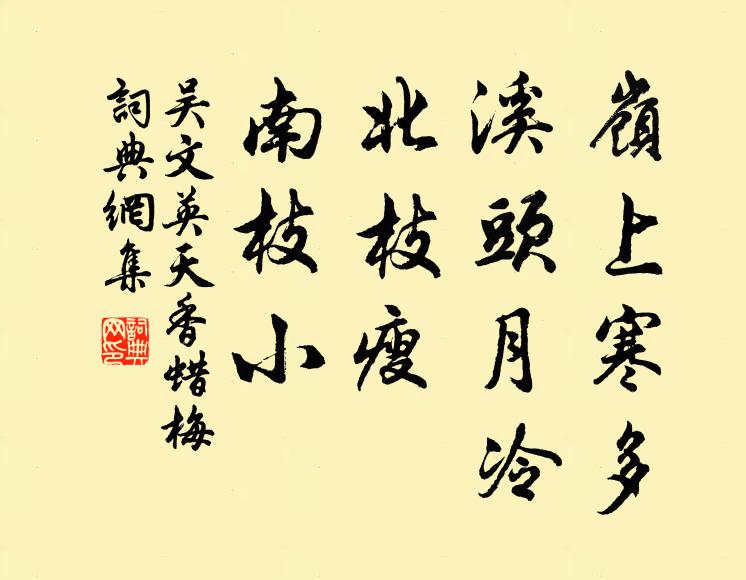 嶺上寒多
溪頭月冷
北枝瘦
南枝小
吴文英天香蜡梅
詞典網集
詞典網印